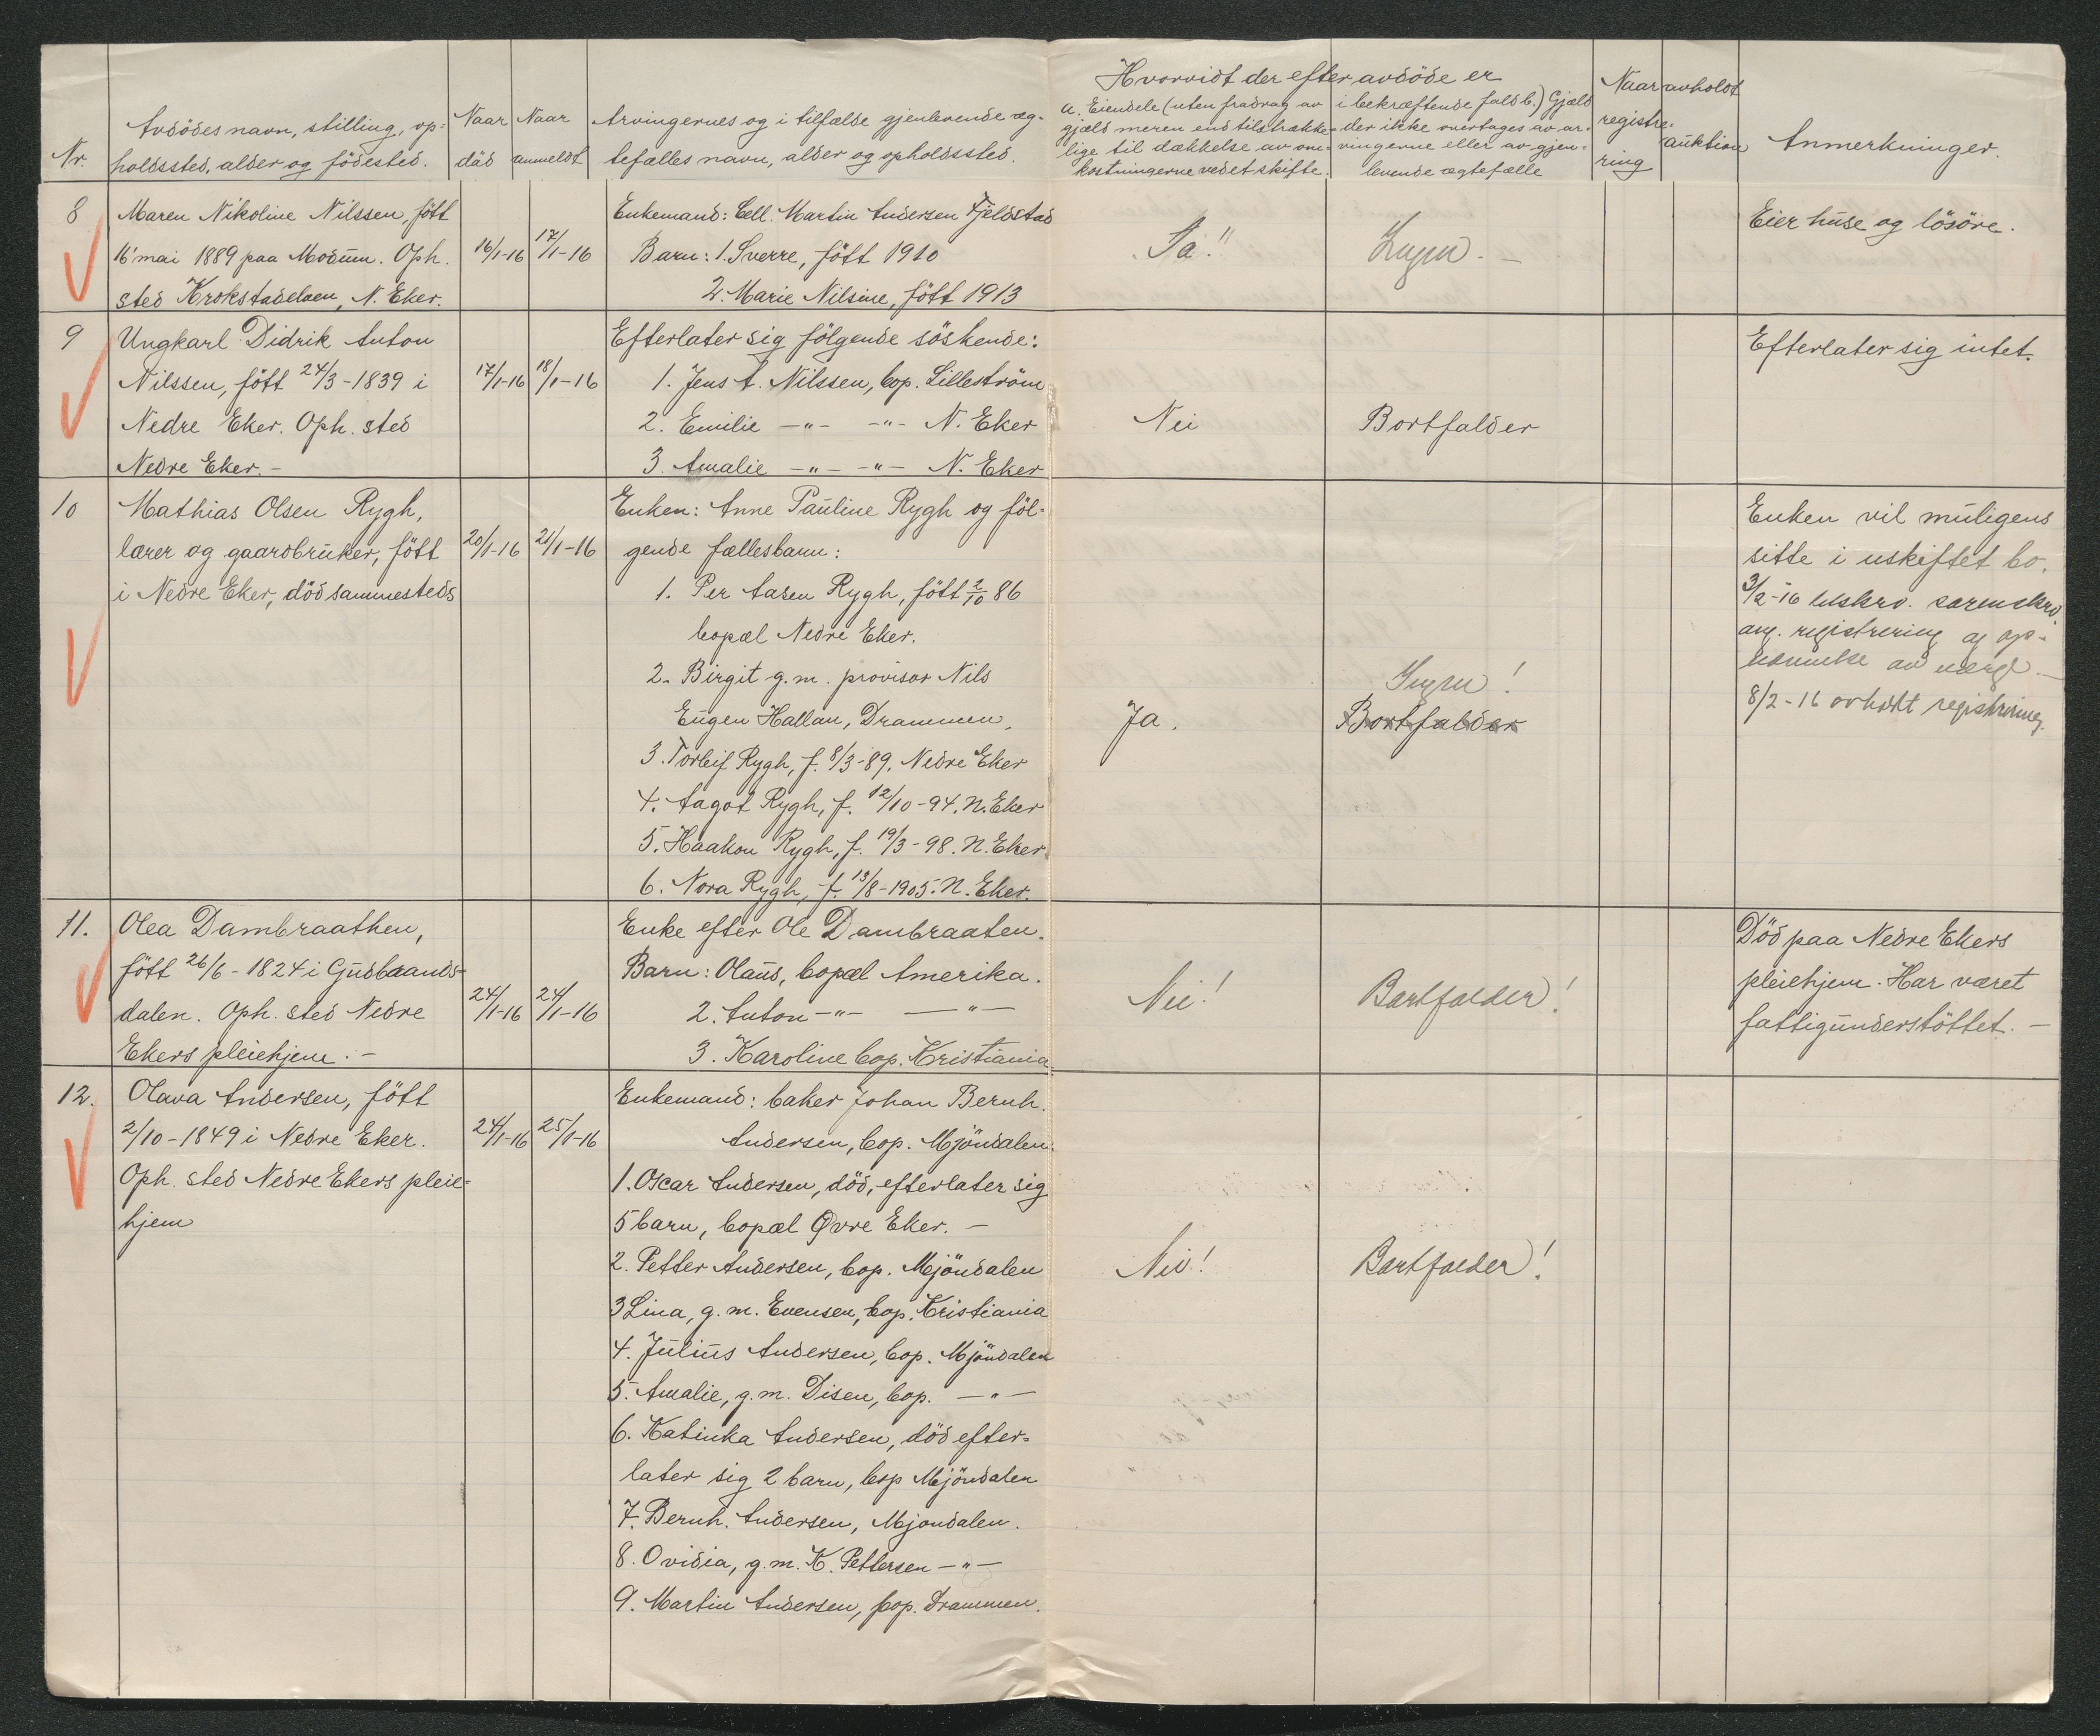 Hvorvidt der efter avdöde er
Nr.
Avdödes navn, stilling, op-
holdssted, alder og födested.
Naar
död
Naar
anmeldt
Arvingernes og i tilfælde gjenlevende æg-
tefælles navn, alder og opholdssted.
a. Eiendele (uten fradrag av
gjæld meren end tilstrække-
lige til dækkelse av om-
kostningerne ved et skifte.
i bekræftende fald b.) Gjæld
der ikke overtages av ar-
vingerne eller av gjen-
levende ægtefælle
Naar avholdt
registre-
ring
auktion
Anmerkninger.
8
Maren Nikoline Nilssen, född
16 mai 1889 paa Modum. Oph.
sted Krokstadelven, N. Eker.
16/1-16
17/1-16
Enkemand: Cell. Martin Andersen Fjeldstad
Barn: 1. Sverre, fött 1910
2. Marie Nilsine, fött 1913
Ja!!
Ingen. -
Eier huse og lösöre.
9
Ungkarl Didrik Anton
Nilssen, fött 24/3-1839 i
Nedre Eker. Oph. sted
Nedre Eker. -
17/1-16
18/1-16
Efterlater sig fölgende söskende:
1. Jens A. Nilssen, bop. Lilleström
2. Emilie -"- -"- N. Eker
3. Amalie -"- -"- N. Eker
Nei
Bortfalder
Efterlater sig intet.
10
Mathias Olsen Rygh,
lærer og gaardbruker, fött
i Nedre Eker, död sammesteds
20/1-16
21/1-16
Enken: Anne Pauline Rygh og föl-
gende fællesbarn:
1. Per Aasen Rygh, fött 2/10 86
bopæl Nedre Eker.
2. Birgit g.m. provisor Nils
Eugen Hallan, Drammen,
3. Torleif Rygh, f. 8/3-89. Nedre Eker
4. Aagot Rygh, f. 12/10-94. N. Eker
5. Haakon Rygh, f. 19/3-98. N. Eker
6. Nora Rygh, f. 13/8-1905. N. Eker.
Ja.
Ingen!
Bortfalder
Enken vil muligens
sitte i uskiftet bo.
3/2-16 tilskrv.
ang. registrering og op-
nævnelse av værge. -
8/2-16 avholdt registrering.
11.
Olea Dambraathen,
fött 26/6-1824 i Gudbrands-
dalen. Oph. sted Nedre
Ekers pleiehjem. -
24/1-16
24/1-16
Enke efter Ole Dambraaten.
Barn: Olaus, bopæl Amerika.
2. Anton -"- -"-
3. Karoline bop. Kristiania
Nei!
Bortfalder!
Död paa Nedre Ekers
pleiehjem. Har været
fattigunderstöttet. -
12.
Olava Andersen, fött
2/10-1849 i Nedre Eker.
Oph. sted Nedre Ekers pleie-
hjem
24/1-16
25/1-16
Enkemand: baker Johan Bernh.
Andersen, bop. Mjöndalen.
1. Oscar Andersen, död, efterlater sig
5 barn, bopæl Øvre Eker. -
2. Petter Andersen, bop. Mjöndalen
3 Lina, g.m. Evensen, bop. Kristiania
4. Julius Andersen, bop. Mjöndalen
5. Amalie, g.m. Disen, bop. -"-
6. Katinka Andersen, död efter-
later sig 2 barn, bop Mjöndalen
7. Bernh. Andersen, Mjondalen.
8. Ovidia, g.m. K. Pettersen -"-
9. Martin Andersen, bop. Drammen.
Nei!
Bortfalder!